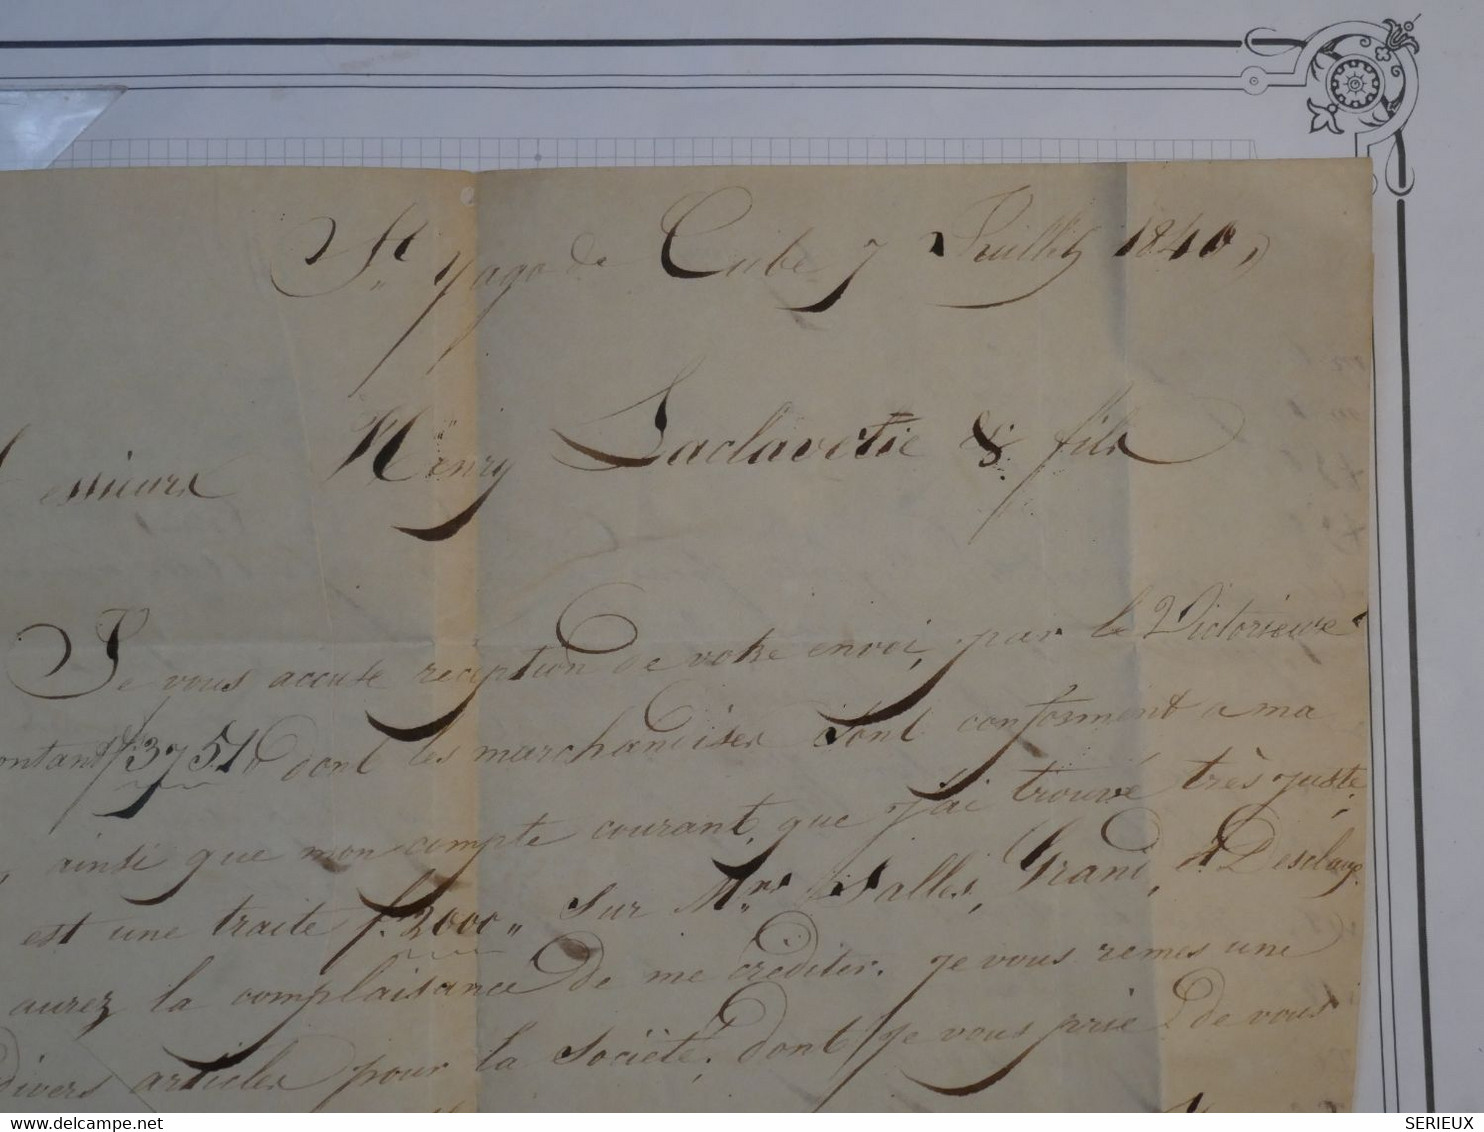 St. Yago de Cube 7 Juillet 1840,
Messieurs Henry Laclavetie & fils
Je vous accuse réception de votre envoi, par le Victorieuse
montant f 3751 dont les marchandises sont conforment a ma
, ainsi que mon compte courant, que j'ai trouvé très juste;
est une traite f. 2000 " sur Mrs Salles, Grand, & Desclaup.
aurez la complaisance de me créditer. Je vous remes une
divers articles pour la Société, dont Je vous prie de vous
SERIEUX